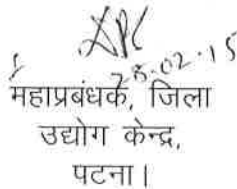 28.02.15
महाप्रबंधक, जिला
उद्योग केन्द्र,
पटना।